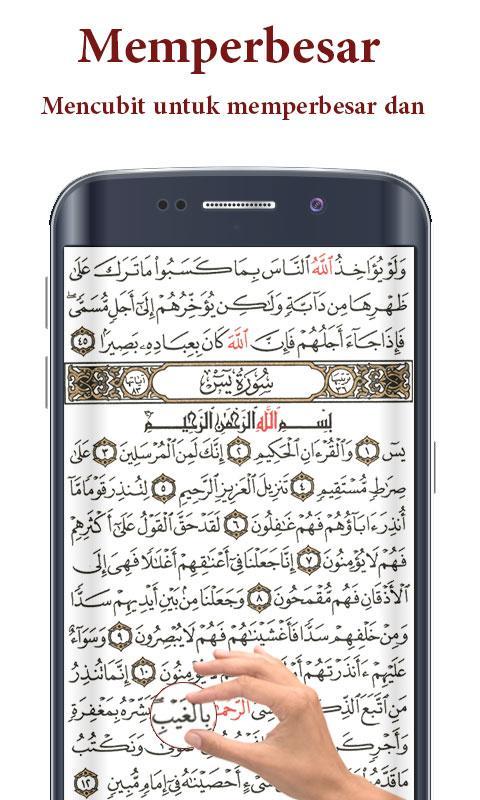 Memperbesar
Mencubit untuk memperbesar dan
وَلَوْ يُؤَاخِذُ ٱللَّهُ ٱلنَّاسَ بِمَا كَسَبُوا۟ مَا تَرَكَ عَلَىٰ
ظَهْرِهَا مِن دَآبَّةٍ وَلَٰكِن يُؤَخِّرُهُمْ إِلَىٰٓ أَجَلٍ مُّسَمًّى ۖ
فَإِذَا جَآءَ أَجَلُهُمْ فَإِنَّ ٱللَّهَ كَانَ بِعِبَادِهِۦ بَصِيرًۢا ٤٥
ترتيبها ٣٦ سُورَةُ يسٓ آياتها ٨٣
بِسْمِ ٱللَّهِ ٱلرَّحْمَٰنِ ٱلرَّحِيمِ
يسٓ ١ وَٱلْقُرْءَانِ ٱلْحَكِيمِ ٢ إِنَّكَ لَمِنَ ٱلْمُرْسَلِينَ ٣ عَلَىٰ
صِرَٰطٍ مُّسْتَقِيمٍ ٤ تَنزِيلَ ٱلْعَزِيزِ ٱلرَّحِيمِ ٥ لِتُنذِرَ قَوْمًا مَّآ
أُنذِرَ ءَابَآؤُهُمْ فَهُمْ غَٰفِلُونَ ٦ لَقَدْ حَقَّ ٱلْقَوْلُ عَلَىٰٓ أَكْثَرِهِمْ
فَهُمْ لَا يُؤْمِنُونَ ٧ إِنَّا جَعَلْنَا فِىٓ أَعْنَٰقِهِمْ أَغْلَٰلًا فَهِىَ إِلَى
ٱلْأَذْقَانِ فَهُم مُّقْمَحُونَ ٨ وَجَعَلْنَا مِنۢ بَيْنِ أَيْدِيهِمْ سَدًّا
وَمِنْ خَلْفِهِمْ سَدًّا فَأَغْشَيْنَٰهُمْ فَهُمْ لَا يُبْصِرُونَ ٩ وَسَوَآءٌ
عَلَيْهِمْ ءَأَنذَرْتَهُمْ ١٠ إِنَّمَا تُنذِرُ
مَنِ ٱتَّبَعَ بِٱلْغَيْبِ بِمَغْفِرَةٍ
وَنَكْتُبُ
أَحْصَيْنَٰهُ فِىٓ إِمَامٍ مُّبِينٍ ١٢